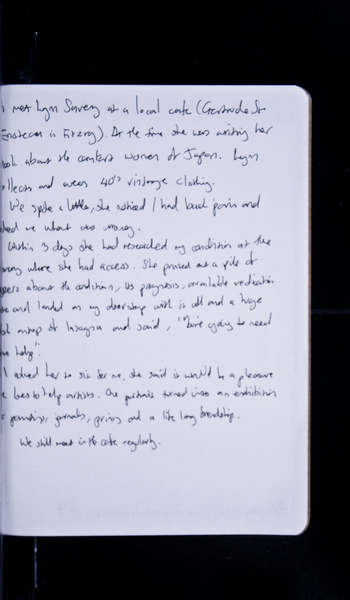 I met Lyn Savery at a local cafe (Gertrude St
Enoteca in Fitzroy). At the time she was writing her
book about the comfort women of Japan. Lyn
collects and wears 40's vintage clothing.
We spoke a little, she noticed I had back pain and
asked me what was wrong.
Within 3 days she had researched my condition at the
where she had access. She printed out a pile of
papers about the condition, its prognosis, available medication
and landed on my doorstep with it all and a huge
of lasagna and said, "You're going to need
help".
I asked her to sit for me, she said it would be a pleasure
to help artists. Our portraits turned into an exhibition
paintings, journals, prints and a life long friendship.
We still meet in the cafe regularly.